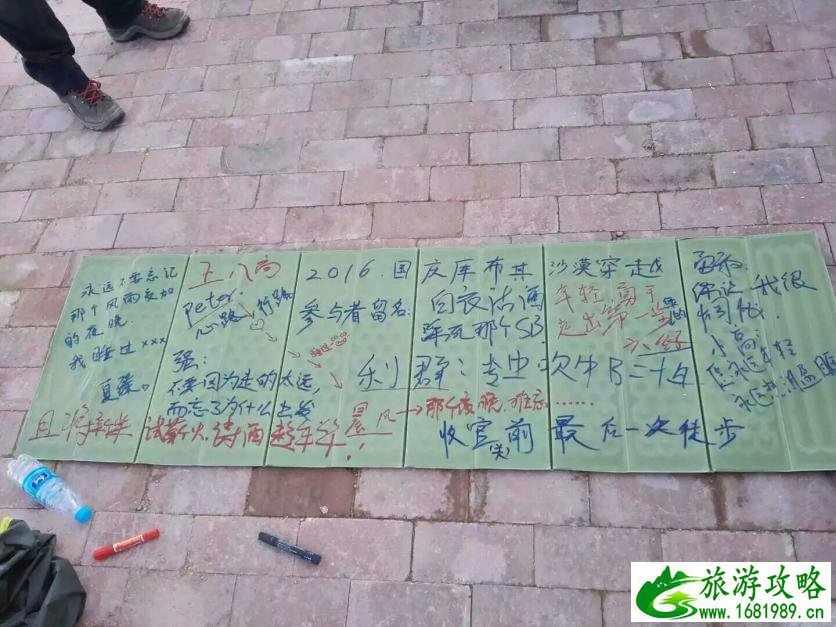 永远不要忘记
那个风雨交加
的夜晚
我睡过xxx
夏蓁。
王八高
Peter.
心路 行路
强:
不要因为走的太远,
而忘了为什么出发
2016.国庆库布其沙漠穿越
参与者留名:
白衣沽酒
踩死那个SB
利群:专中吹牛B二十年
年轻高手
走出第一
且将新 试新火,诗酒趁年华!
星风→那个夜晚,难忘......
收官前最后一次徒步
我很
小高:
永远年轻
永远
旅游攻略
www.1681989.cn